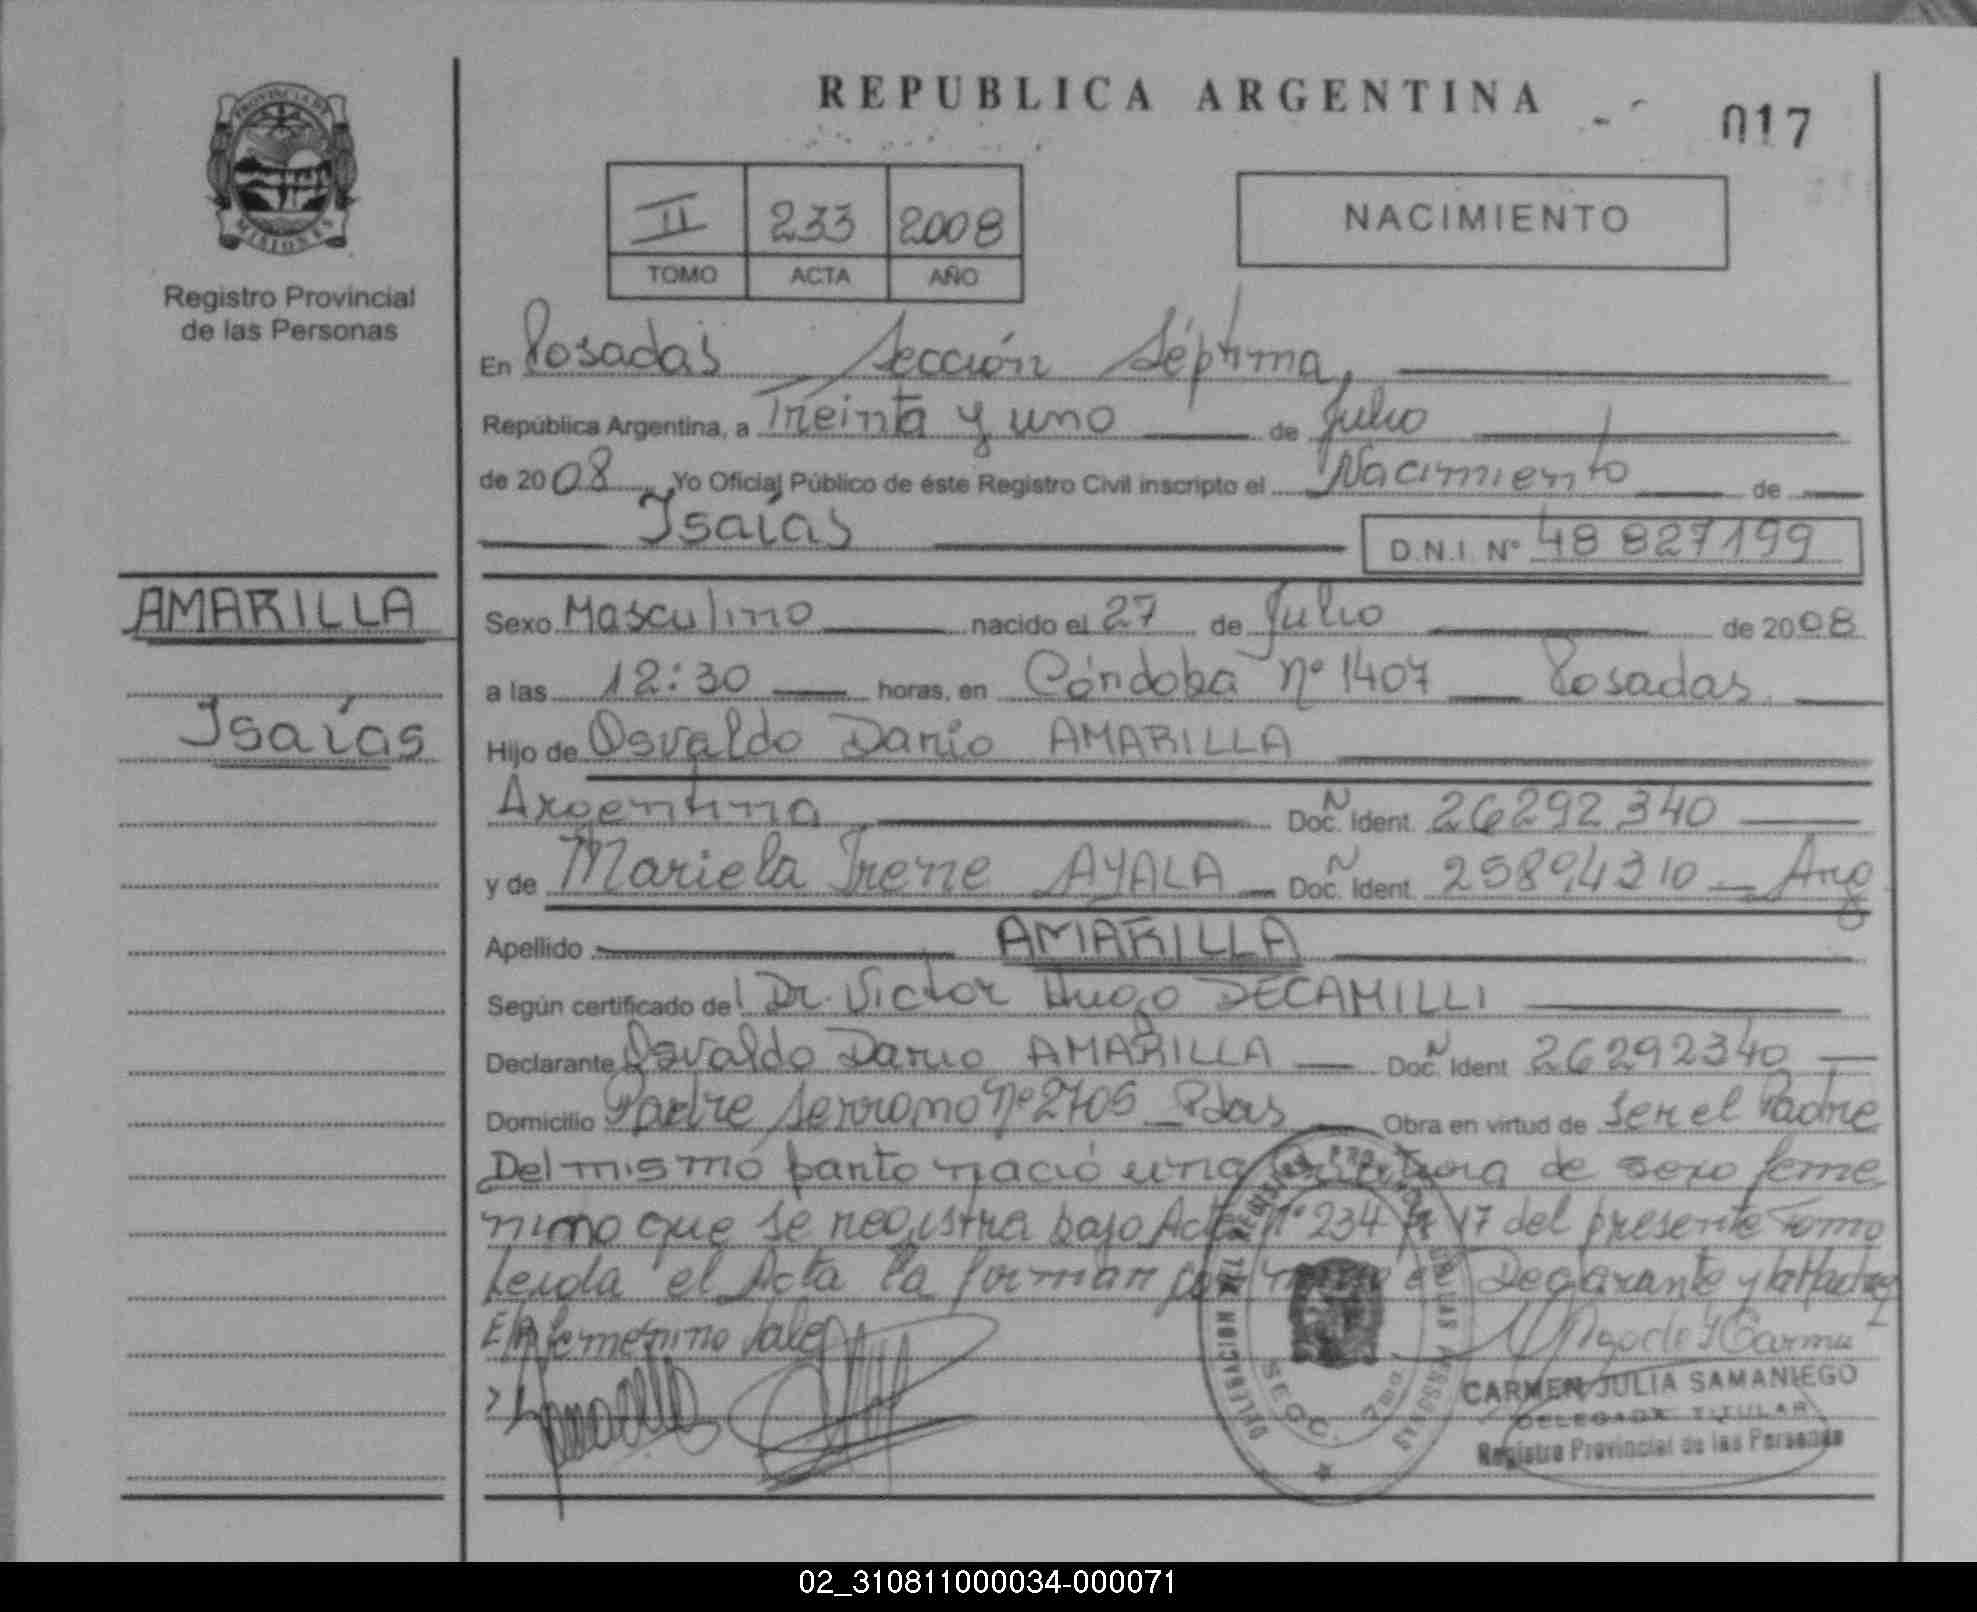 REPUBLICA ARGENTINA
017
PROVINCIA DE MISIONES
Registro Provincial
de las Personas
II 233 2008
TOMO ACTA AÑO
NACIMIENTO
En Posadas Sección Séptima,
República Argentina, a Treinta y uno de Julio
de 2008 Yo Oficial Público de éste Registro Civil inscripto el Nacimiento de
Isaías D.N.I. Nº 48 827199
AMARILLA
Isaías
Sexo Masculino nacido el 27 de Julio de 2008
a las 12:30 horas, en Córdoba Nº 1407 Posadas
Hijo de Osvaldo Dario AMARILLA
Argentina Doc. Ident. 26292340
y de Mariela Irene AYALA Doc. Ident. 25894310 Arg
Apellido AMARILLA
Según certificado del Dr. Victor Hugo DECAMILLI
Declarante Osvaldo Dario AMARILLA Doc. Ident 26292340
Domicilio Padre Serrano Nº 2705 Pdas Obra en virtud de ser el Padre
Del mismo parto nació una de sexo feme
nino que se registra bajo Acta nº 234 17 del presente Tomo
Leida el Acta la firman Declarante y la Madre
femenino vale
CARMEN JULIA SAMANIEGO
DELEGADA TITULAR
Registro Provincial de las Personas
02_310811000034-000071